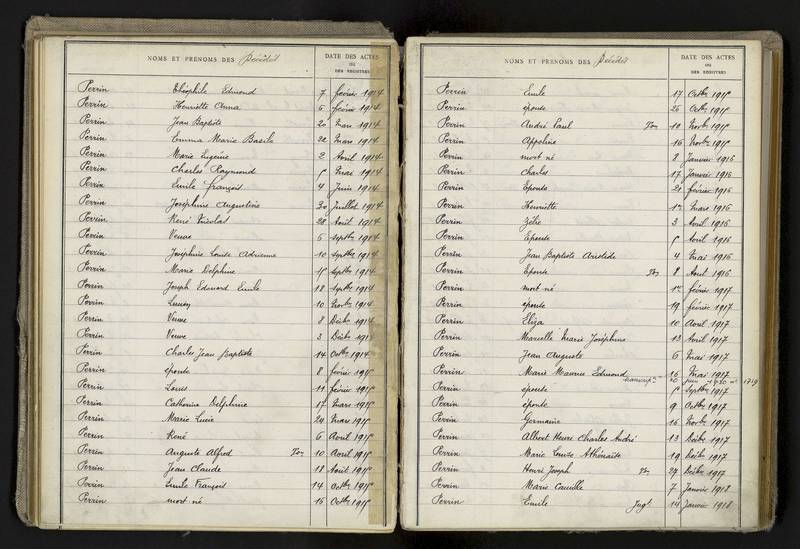 NOMS ET PRÉNOMS DES Décédés
DATE DES ACTES
OU
DES REGISTRES
Perrin Théophile Edmond 7 février 1914
Perrin Henriette Anna 6 février 1914
Perrin Jean Baptiste 20 Mars 1914
Perrin Emma Marie Basile 22 Mars 1914
Perrin Marie Eugénie 2 Avril 1914
Perrin Charles Raymond Mai 1914
Perrin Emile François 4 Juin 1914
Perrin Joséphine Augustine 30 Juillet 1914
Perrin René Nicolas 28 Août 1914
Perrin Veuve 6 Septbre 1914
Perrin Joséphine Louise Adrienne 10 Septbre 1914
Perrin Marie Delphine Septbre 1914
Perrin Joseph Edouard Emile 18 Septbre 1914
Perrin Lucien 10 Novbre 1914
Perrin Veuve 8 Décbre 1914
Perrin Veuve 3 Décbre 1914
Perrin Charles Jean Baptiste 14 Octbre 1914
Perrin épouse 8 février 1915
Perrin Louis 11 février 1915
Perrin Catherine Delphine 17 Mars 1915
Perrin Marie Lucie 24 Mars 1915
Perrin René 6 Avril 1915
Perrin Auguste Alfred Ton 10 Avril 1915
Perrin Jean Claude 18 Août 1915
Perrin Emile François 14 Octbre 1915
Perrin mort né 16 Octbre 1915
NOMS ET PRÉNOMS DES Décédés
DATE DES ACTES
OU
DES REGISTRES
Perrin Emile 17 Octbre 1915
Perrin épouse 26 Octbre 1915
Perrin André Paul Ton 10 Novbre 1915
Perrin Appoline 16 Novbre 1915
Perrin mort né 8 Janvier 1916
Perrin Charles 17 Janvier 1916
Perrin Epouse 21 février 1916
Perrin Henriette 1er Mars 1916
Perrin Zélie 3 Avril 1916
Perrin Epouse Avril 1916
Perrin Jean Baptiste Aristide 4 Mai 1916
Perrin Epouse Ton 8 Août 1916
Perrin mort né 1er février 1917
Perrin épouse 19 février 1917
Perrin Eliza 10 Avril 1917
Perrin Marcelle Marie Joséphine 13 Avril 1917
Perrin Jean Auguste 6 Mai 1917
Perrin Marie Maurice Edmond 16 Mai 1917
transcripon 20 Juin 1920 1719
Perrin épouse Septbre 1917
Perrin épouse 9 Octbre 1917
Perrin Germaine 16 Novbre 1917
Perrin Albert Henri Charles André 13 Décbre 1917
Perrin Marie Louise Athénaïse 19 Décbre 1917
Perrin Henri Joseph Ton 27 Décbre 1917
Perrin Marie Camille 7 Janvier 1918
Perrin Emile Jugt 14 Janvier 1918